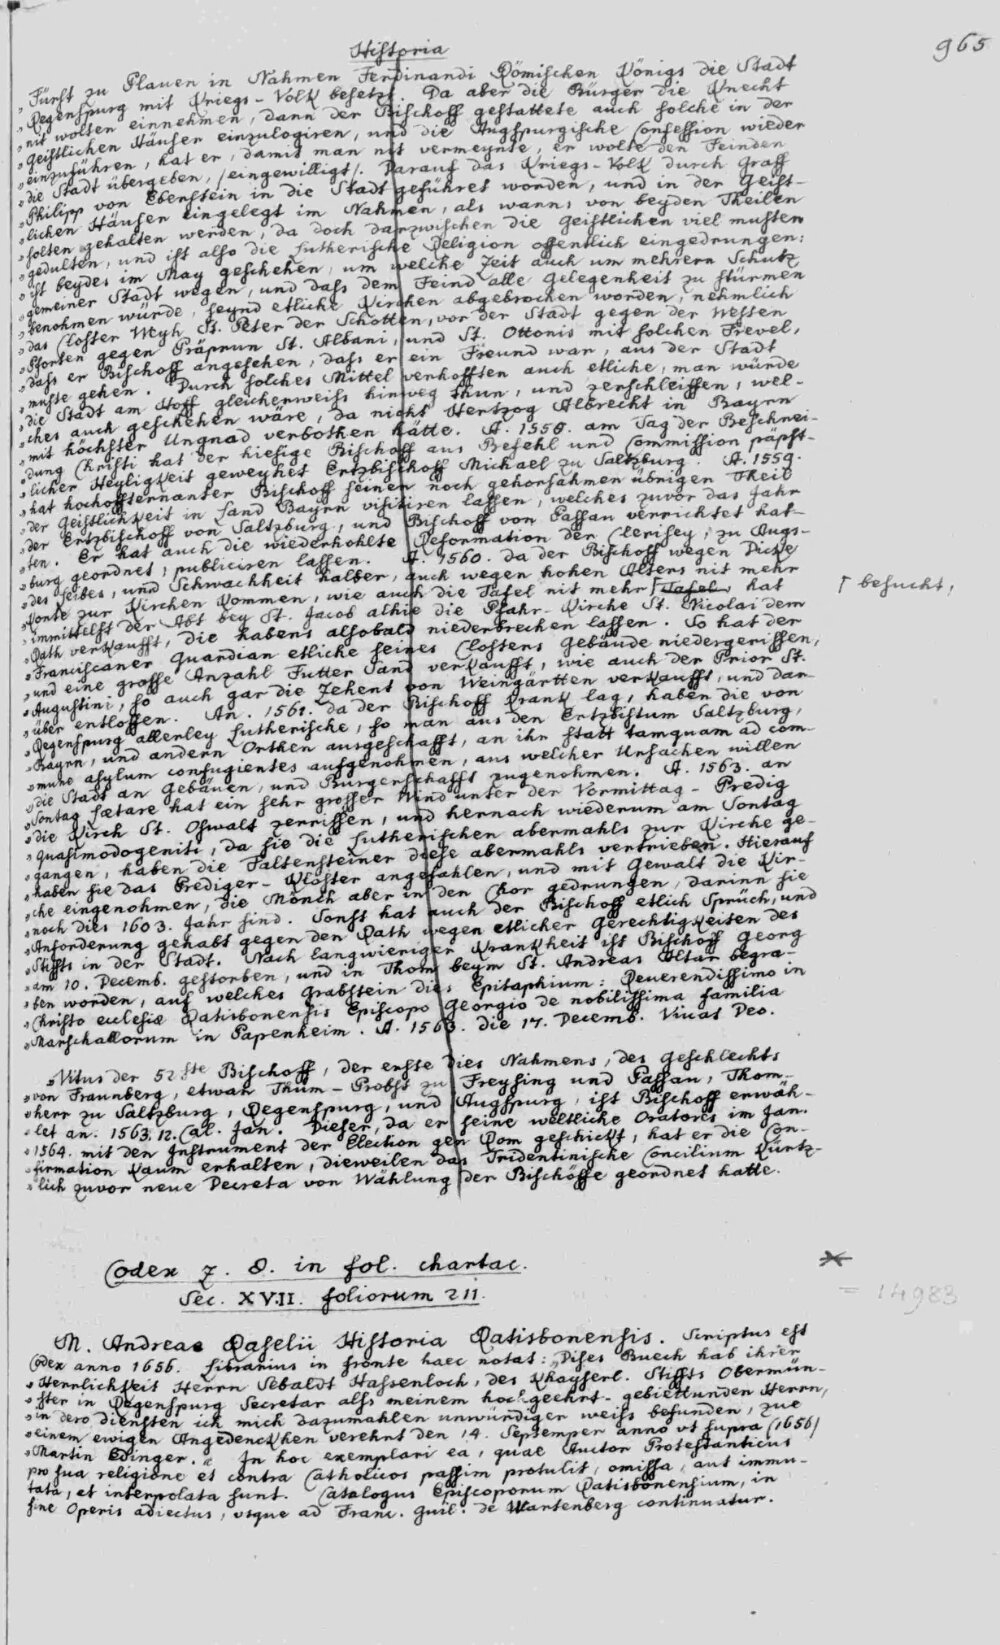 965
Historia
„Fürst zu Plauen in Nahmen Ferdinandi Römischen Königs die Stadt
„Regenspurg mit Kriegs-Volk besetzt. Da aber die Bürger die Knecht
„nit wolten einnehmen, dann der Bischoff gestattete auch solche in der
„Geistlichen Häuser einzulogiren, und die Augspurgische Confession wieder
„einzuführen, hat er, damit man nit vermeynte, er wolte den Feinden
„die Stadt übergeben, /eingewilligt/. Darauf das Kriegs-Volk durch Graff
„Philipp von Eberstein in die Stadt geführet worden, und in der Geist-
„lichen Häuser eingelegt im Nahmen, als wann's von beyden Theilen
„solten gehalten werden, da doch darzwischen die Geistlichen viel musten
„gedulten, und ist also die Lutherische Religion offentlich eingedrungen:
„ist beydes im May geschehen, um welche Zeit auch um mehrern Schutz
„gemeiner Stadt wegen, und dass dem Feind alle Gelegenheit zu stürmen
„benohmen würde, seynd etliche Kirchen abgebrochen worden, nehmlich
„das Closter Weyh St. Peter der Schotten, vor der Stadt gegen der Westen
„Pforten gegen Präprun St. Albani, und St. Ottonis mit solchen Frevel,
„dass er Bischoff angesehen, dass er ein Freund war, aus der Stadt
„muste gehen. Durch solches Mittel verhofften auch etliche, man würde
„die Stadt am Hoff gleicherweiss hinweg thun, und zerschleiffen, wel-
„ches auch geschehen wäre, da nicht Hertzog Albrecht in Bayrn
„mit höchster Ungnad verbothen hätte. A. 1558. am Tag der Beschnei-
„dung Christi hat der hiesige Bischoff aus Befehl und Commission päpst-
„licher Heyligkeit geweyhet Ertzbischoff Michael zu Saltzburg. A. 1559.
„hat hochoffternanter Bischoff seinen noch gehorsahmen übrigen Theil
„der Geistlichkeit in Land Bayrn visitiren lassen, welches zuvor das Jahr
„der Ertzbischoff von Saltzburg, und Bischoff von Passau verrichtet hat-
„ten. Er hat auch die wiederhohlte Reformation der Clerisey, zu Augs-
„burg geordnet, publiciren lassen. A. 1560. da der Bischoff wegen Dicke
„des Leibes, und Schwachheit halber, auch wegen hohen Alters nit mehr
„konte zur Kirchen kommen, wie auch die Tafel nit mehr ſ Tafel, hat
ſ besucht,
„immittelst der Abt bey St. Jacob alhie die Pfahr-Kirche St. Nicolai dem
„Rath verkaufft, die habens alsobald niederbrechen lassen. So hat der
„Franciscaner Guardian etliche seines Closters Gebäude niedergerissen,
„und eine grosse Anzahl Futter Sand verkaufft, wie auch der Prior St.
„Augustini, so auch gar die Zehent von Weingärtten verkaufft, und dar-
„über entloffen. An. 1561. da der Bischoff krank lag, haben die von
„Regenspurg allerley Lutherische, so man aus den Ertzbistum Saltzburg,
„Bayrn, und andern Orthen ausgeschafft, an ihr Statt tamquam ad com-
„mune asylum confugientes aufgenohmen, aus welcher Ursachen willen
„die Stadt an Gebäuen, und Bürgerschafft zugenohmen. A. 1563. an
„Sontag Lætare hat ein sehr grosser Wind unter der Vormittag-Predig
„die Kirch St. Oswalt zerrissen, und hernach wiederum am Sontag
„Quasimodogeniti, da sie die Lutherischen abermahls zur Kirche ge-
„gangen, haben die Faltensteiner diese abermahls vertrieben. Hierauf
„haben sie das Prediger-Kloster angefahlen, und mit Gewalt die Kir-
„che eingenohmen, die Mönch aber in den Chor gedrungen, darinn sie
„noch dies 1603. Jahr sind. Sonst hat auch der Bischoff etlich Sprüch, und
„Anforderung gehabt gegen den Rath wegen etlicher Gerechtigkeiten des
„Stiffts in der Stadt. Nach langwieriger Krankheit ist Bischoff Georg
„am 10. Decemb. gestorben, und in Thom beym St. Andreas Altar begra-
„ben worden, auf welches Grabstein dies Epitaphium: Reverendissimo in
„Christo ecclesiæ Ratisbonensis Episcopo Georgio de nobilissima familia
„Marschallorum in Papenheim. A. 1563. die 17. Decemb. Vivas Deo.
„Vitus der 52ste Bischoff, der erste dies Nahmens, des Geschlechts
„von Fraunberg, etwan Thum-Probst zu Freysing und Passau, Thom-
„herr zu Saltzburg, Regenspurg, und Augspurg, ist Bischoff erwäh-
„let an. 1563. 12. Cal. Jan. Dieser, da er seine weltliche Oratores im Jan.
„1564. mit den Instrument der Election gen Rom geschickt, hat er die Con-
„firmation kaum erhalten, dieweilen das Tridentinische Concilium kürtz-
„lich zuvor neue Decreta von Wählung der Bischöffe geordnet hatte.
Codex Z. 8. in fol. chartac.
Sec. XVII. foliorum 211.
= 14983
M. Andreae Raselii Historia Ratisbonensis. Scriptus est
Codex anno 1656. Librarius in fronte haec notat: „Dises Buech hab ihrer
„Herrlichkeit Herrn Sebaldt Hassenloch, des Khayserl. Stiffts Obermün-
„ster in Regenspurg Secretar alss meinem hochgeehrt-gebiettunden Herrn,
„in dero diensten ich mich dazumahlen unwürdiger weiss befunden, zue
„einem ewigen Angedenckhen verehrt den 14. September anno vt supra (1656)
„Martin Edinger.“ In hoc exemplari ea, quae Auctor Protestanticus
pro sua religione et contra Catholicos passim protulit, omissa, aut immu-
tata, et interpolata sunt. Catalogus Episcoporum Ratisbonensium, in
fine Operis adiectus, vsque ad Franc. Guil: de Wartenberg continuatur.